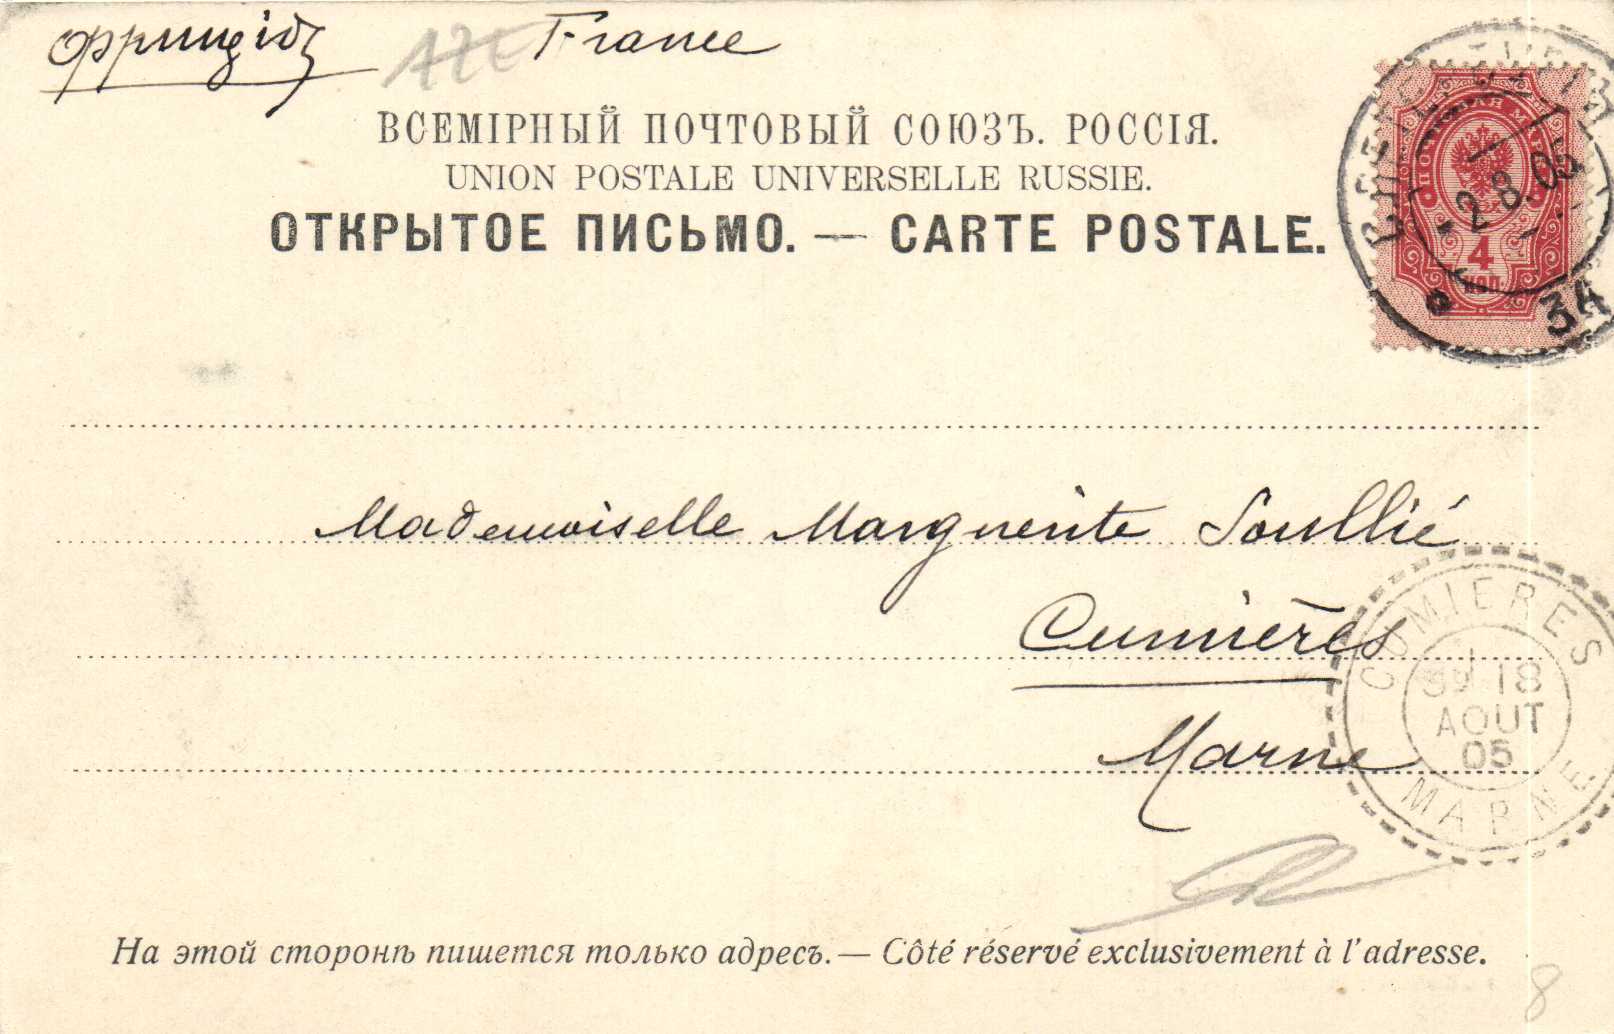 France
ВСЕМІРНЫЙ ПОЧТОВЫЙ СОЮЗЪ. РОССІЯ.
UNION POSTALE UNIVERSELLE RUSSIE.
ОТКРЫТОЕ ПИСЬМО. — CARTE POSTALE.
ПОЧТОВАЯ МАРКА
2.8.05
4
КОП.
34
Mademoiselle Marguerite Soullié
Cumières
Marne
CUMIERES
18
AOUT
05
MARNE
На этой сторонѣ пишется только адресъ. — Côté réservé exclusivement à l'adresse.
8